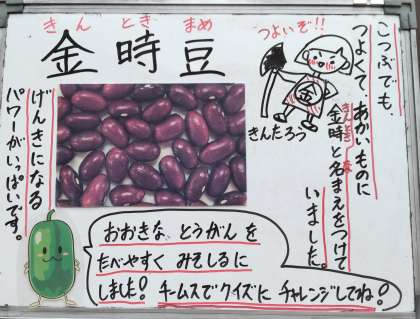 きん とき まめ
金時豆
つよいぞ!!
金
きんたろう
こつぶでも、
つよくて、あかいものに
きんとき
金時と名まえをつけて
いました。
げんきになる
パワーがいっぱいです。
おおきな とうがんを
たべやすく みそしるに
しました! チームスでクイズに チャレンジしてね!